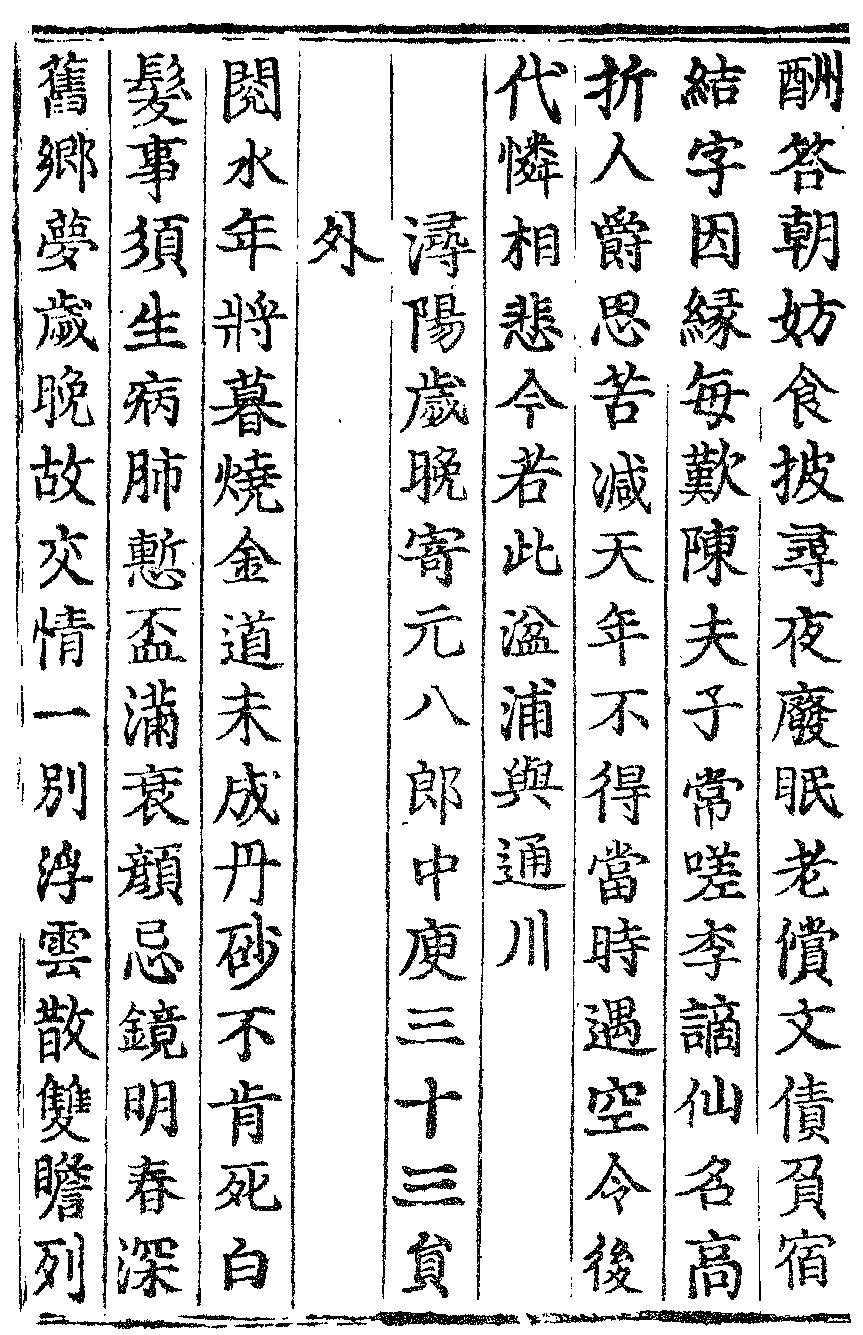 酬答朝妨食披尋夜廢眠老償文債負宿
結字因緣每歎陳夫子常嗟李謫仙名高
折人爵思苦減天年不得當時遇空令後
代憐相悲今若此湓浦與通川
潯陽歲晚寄元八郎中庾三十三貟
外
閱水年將暮燒金道未成丹砂不肯死白
髮事須生病肺慙盃滿衰顏忌鏡明春深
舊鄉夢歲晚故交情一別浮雲散雙瞻列